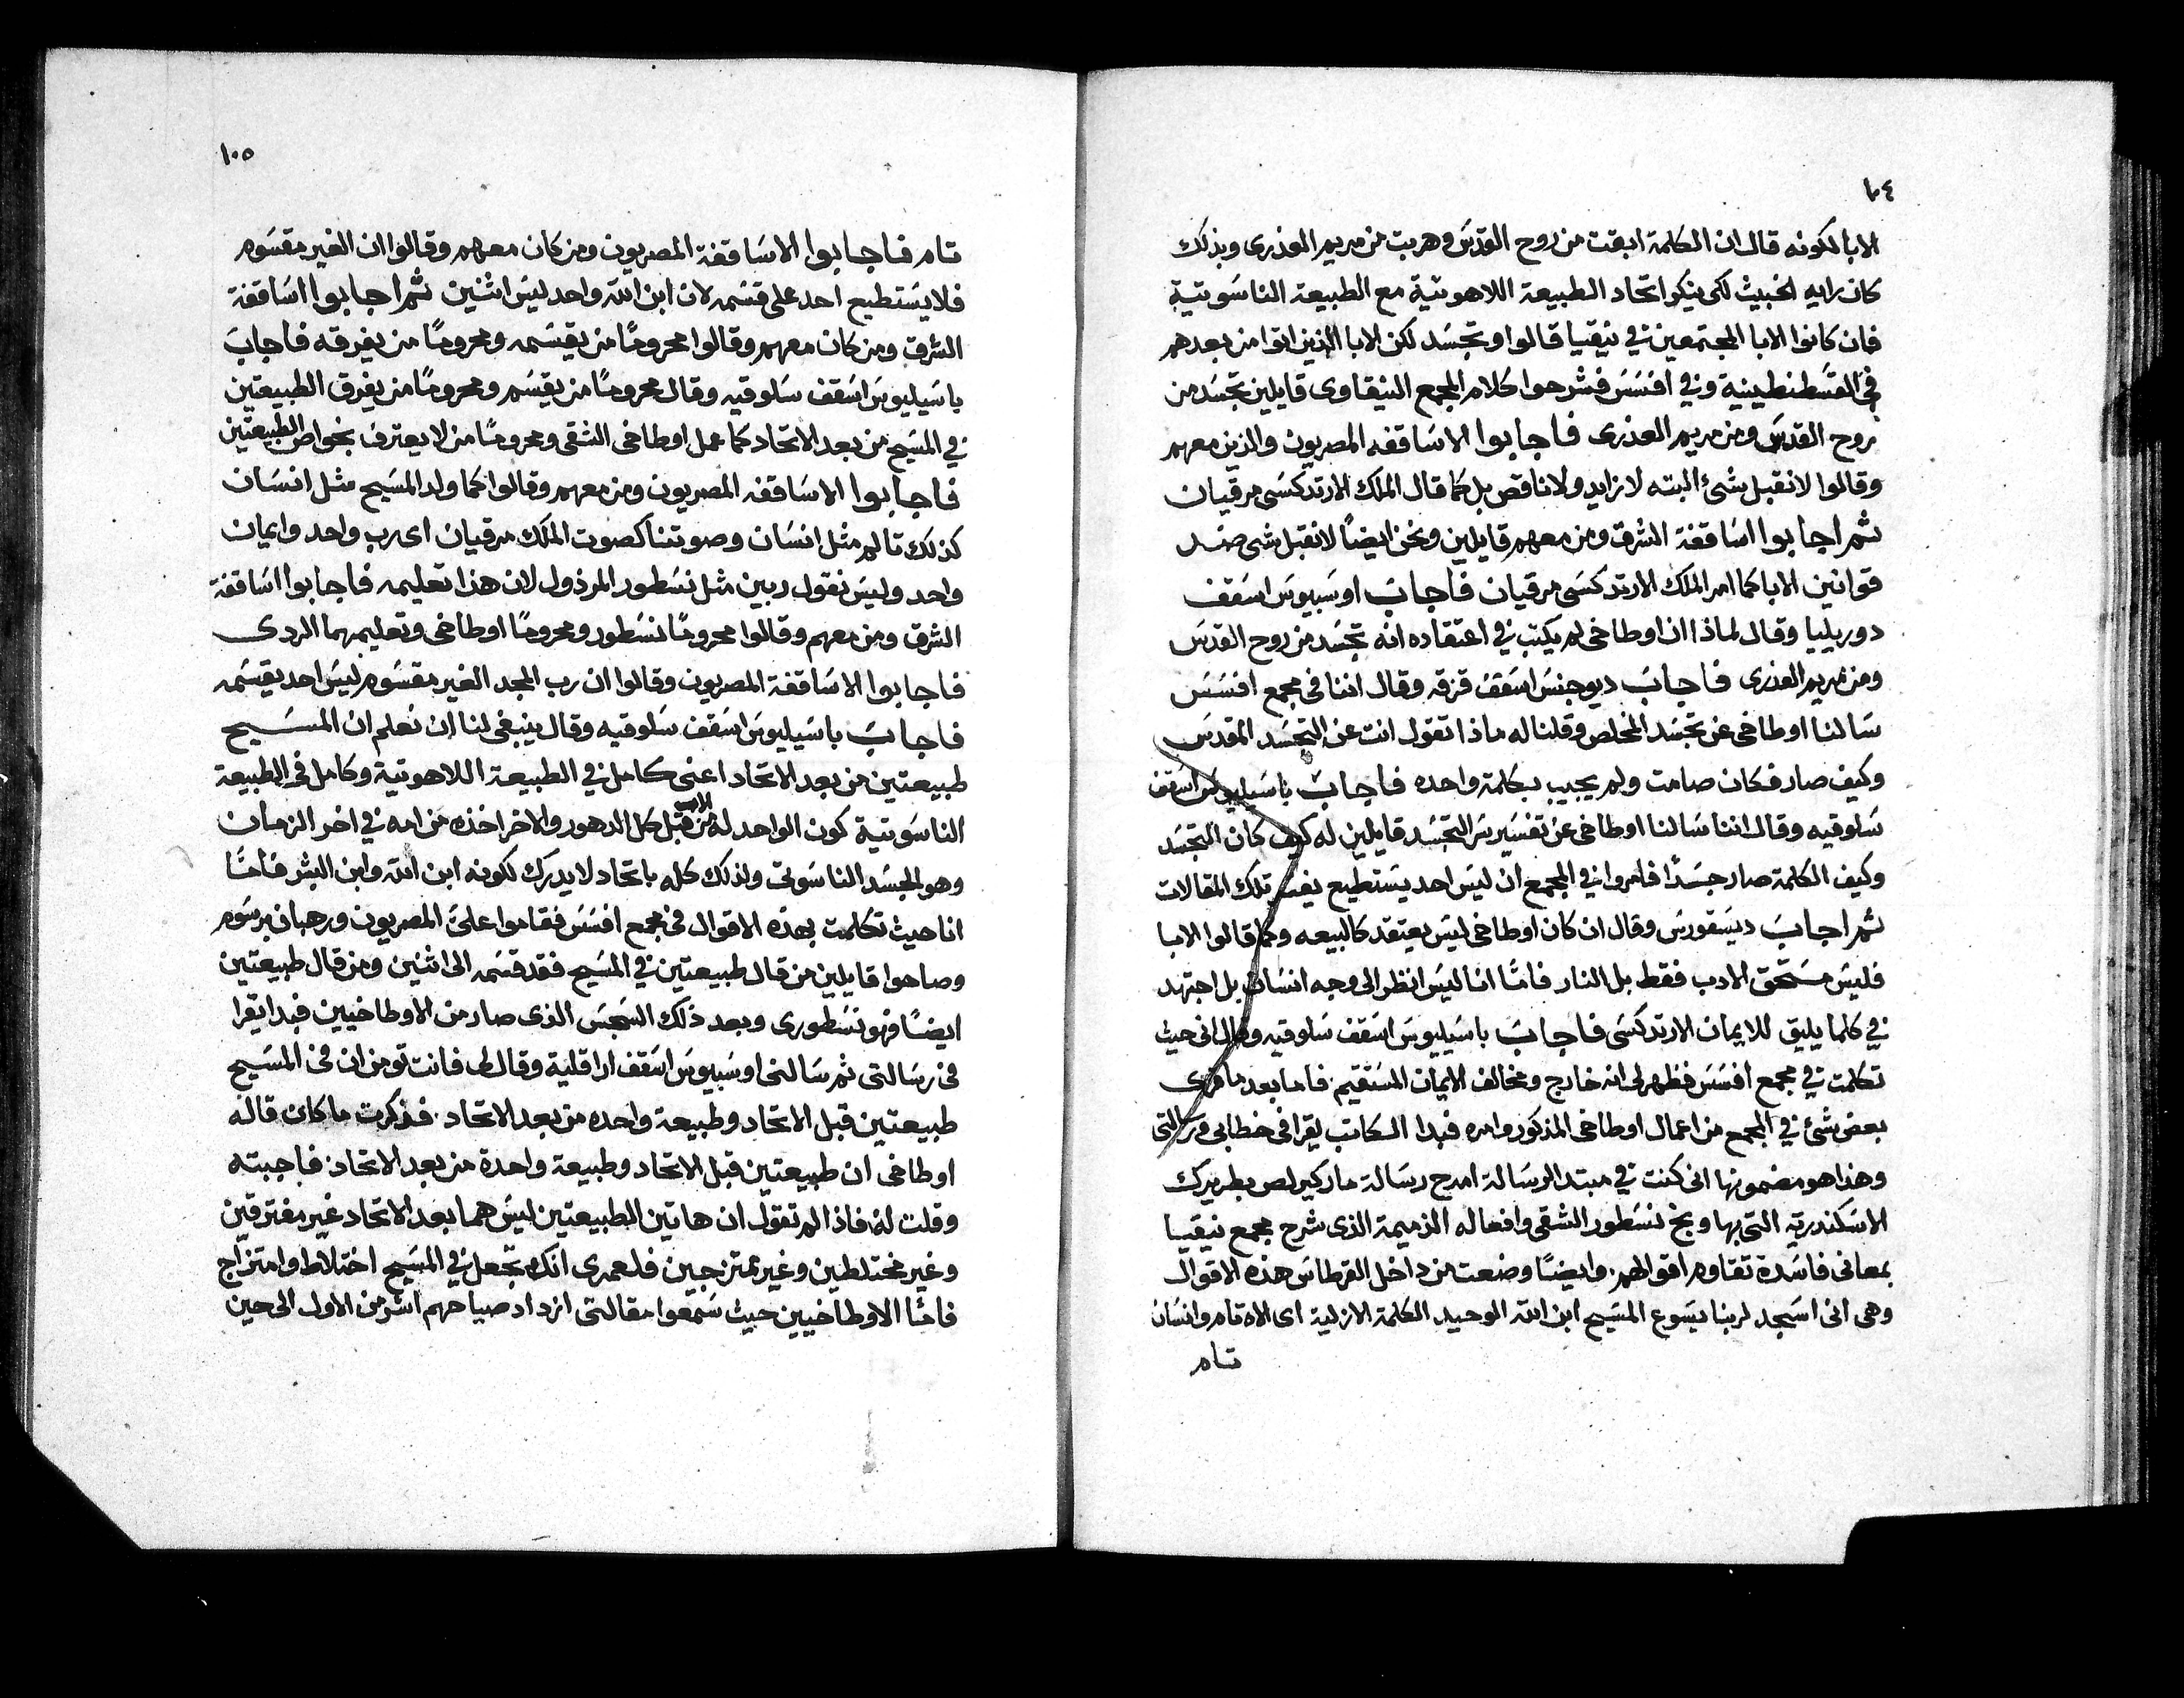 ١٠٤
الابا لكونه قال ان الكلمة ابقت من روح القدس وهربت من مريم العذرى وبذلك
كان رايه الخبيث لكى ينكر اتحاد الطبيعة اللاهوتية مع الطبيعة الناسوتية
فان كانوا الابا المجتمعين فى نيقيا قالوا وتجسد لكن الابا الذين اتوا من بعدهم
فى القسطنطينية وفى افسس فشرحوا كلام المجمع النيقاوى قايلين تجسد من
روح القدس ومن مريم العذرى فاجابوا الاساقفه المصريون والذين معهم
وقالوا لا نقبل شئ البته لا زايد ولا ناقص بل كما قال الملك الارتدكسى مرقيان
ثم اجابوا اساقفة الشرق ومن معهم قايلين ونحن ايضًا لا نقبل شى ضد
قوانين الابا كما امر الملك الارتدكسى مرقيان فاجاب اوسبيوس اسقف
دوريليا وقال لماذا ان اوطاخى لم يكتب فى اعتقاده انه تجسد من روح القدس
ومن مريم العذرى فاجاب ديوجنس اسقف قزقه وقال اننا فى مجمع افسس
سالنا اوطاخى عن تجسد المخلص وقلنا له ماذا تقول انت عن التجسد المقدس
وكيف صار فكان صامت ولم يجيب بكلمة واحده فاجاب باسيليوس اسقف
سلوقيه وقال اننا سالنا اوطاخى عن تفسير سر التجسد قايلين له كيف كان التجسد
وكيف الكلمة صار جسدًا فامروا فى المجمع ان ليس احد يستطيع يفسر تلك المقالات
ثم اجاب ديسقورس وقال ان كان اوطاخى ليس يعتقد كالبيعه وكما قالوا الابا
فليس مستحق الادب فقط بل النار فامًا انا ليس انظر الى وجه انسان بل اجتهد
فى كلما يليق للايمان الارتدكسى فاجاب باسيليوس اسقف سلوقيه وقال انى حيث
تكلمت فى مجمع افسس فظهر لى انه خارج ومخالف الايمان المستقيم فاما بعد ما قرى
بعض شئ فى المجمع من اعمال اوطاخى المذكور وامره فبدا الكاتب يقرا فى خطابى ورسالتى
وهذا هو مضمونها انى كنت فى مبتدا الرسالة امدح رسالة مار كيرلص بطريرك
الاسكندريه التى بها وبخ نسطور الشقى وافعاله الذميمة الذى شرح مجمع نيقيا
بمعانى فاسدة تقاوم اقوالهم وايضًا وضعت من داخل القرطاس هذه الاقوال
وهى انى اسجد لربنا يسوع المسيح ابن الله الوحيد الكلمة الازلية اى الاه تام وانسان
تام
١٠٥
تام فاجابوا الاساقفة المصريون ومن كان معهم وقالوا ان الغير مقسوم
فلا يستطيع احد على قسمه لان ابن الله واحد ليس اثنين ثم اجابوا اساقفة
الشرق ومن كان معهم وقالوا محرومًا من يقسمه ومحرومًا من يفرقه فاجاب
باسيليوس اسقف سلوقيه وقال محرومًا من يقسم ومحرومًا من يفرق الطبيعتين
فى المسيح من بعد الاتحاد كما عمل اوطاخى الشقى ومحرومًا من لا يعترف بخواص الطبيعتين
فاجابوا الاساقفه المصريون ومن معهم وقالوا كما ولد المسيح مثل انسان
كذلك تالم مثل انسان وصوتنا كصوت الملك مرقيان اى رب واحد وايمان
واحد وليس نقول ربين مثل نسطور المرذول لان هذا تعليمه فاجابوا اساقفة
الشرق ومن معهم وقالوا محرومًا نسطور ومحرومًا اوطاخى وتعليمهما الردى
فاجابوا الاساقفة المصريون وقالوا ان رب المجد الغير مقسوم ليس احد يقسمه
فاجاب باسيليوس اسقف سلوقيه وقال ينبغى لنا ان نعلم ان المسيح
طبيعتين من بعد الاتحاد اعنى كامل فى الطبيعة اللاهوتية وكامل فى الطبيعة
الناسوتية كون الواحد له من الاب قبل كل الدهور والاخر اخذه من امه فى اخر الزمان
وهو الجسد الناسوتى ولذلك كله باتحاد لا يدرك لكونه ابن الله وابن البشر فامًا
انا حيث تكلمت بهذه الاقوال فى مجمع افسس فقاموا علىّ المصريون ورهبان برسوم
وصاحوا قايلين من قال طبيعتين فى المسيح فقد قسمه الى اثنين ومن قال طبيعتين
ايضًا فهو نسطورى وبعد ذلك السجس الذى صار من الاوطاخيين فبدا يقرا
فى رسالتى ثم سالنى اوسبيوس اسقف اراقلية وقال لى فانت تومن ان فى المسيح
طبيعتين قبل الاتحاد وطبيعة واحده من بعد الاتحاد فذكرت ما كان قاله
اوطاخى ان طبيعتين قبل الاتحاد وطبيعة واحدة من بعد الاتحاد فاجبته
وقلت له فاذا لم تقول ان هاتين الطبيعتين ليس هما بعد الاتحاد غير مفترقين
وغير مختلطين وغير ممتزجين فلعمرى انك تجعل فى المسيح اختلاط وامتزاج
فامًا الاوطاخيين حيث سمعوا مقالتى ازداد صياحهم اشر من الاول الى حين